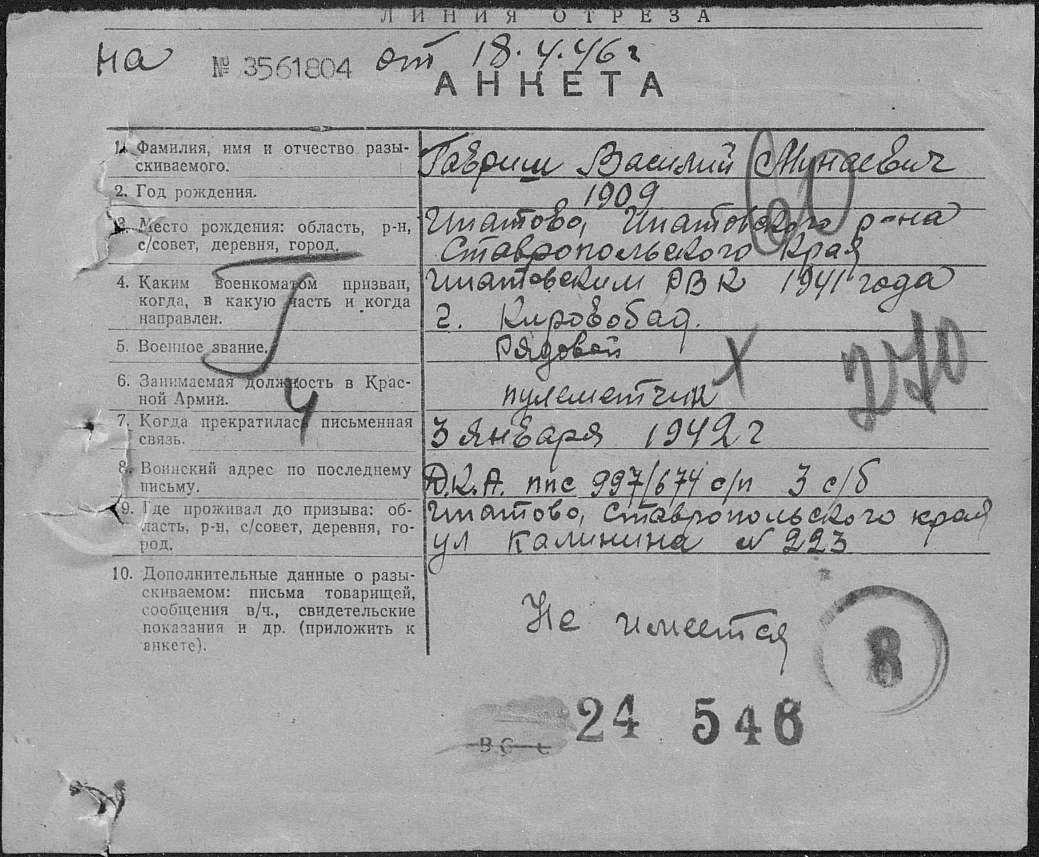 ЛИНИЯ ОТРЕЗА
на № 3561804 от 18.4.46 г
АНКЕТА
1. Фамилия, имя и отчество разы-
скиваемого.
Гавриш Василий Минаевич
2. Год рождения.
1909
3. Место рождения: область, р-н,
с/совет, деревня, город.
Ипатово, Ипатовского р-на
Ставропольского края
4. Каким военкоматом призван,
когда, в какую часть и когда
направлен.
Ипатовским РВК 1941 года
г. Кировобад.
5. Военное звание.
Рядовой
6. Занимаемая должность в Крас-
ной Армии.
пулеметчик
7. Когда прекратилась письменная
связь.
3 января 1942 г
8. Воинский адрес по последнему
письму.
Д.К.А. ппс 997/674 с/п 3 с/б
9. Где проживал до призыва: об-
ласть, р-н, с/совет, деревня, го-
род.
Ипатово, Ставропольского края
ул Калинина № 223
10. Дополнительные данные о разы-
скиваемом: письма товарищей,
сообщения в/ч., свидетельские
показания и др. (приложить к
анкете).
Не имеется
270
4
8
24 546